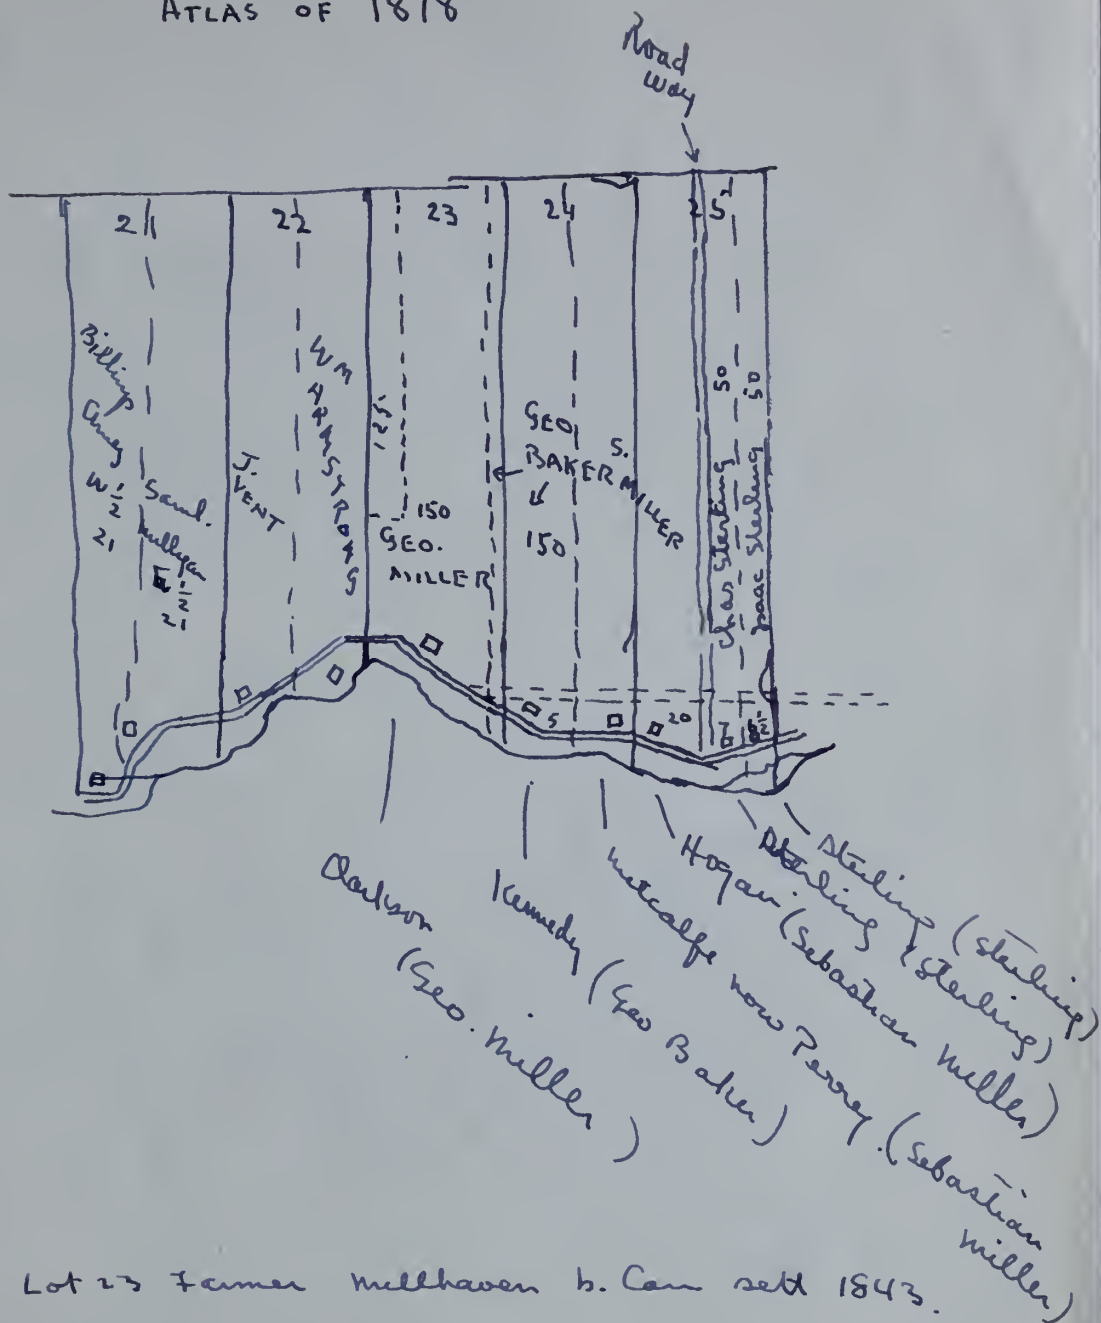 ATLAS OF 1878
Road
way
21
22
23
24
25
Billing
W ½
21
Saml.
Mulligan
E ½
21
J.
VENT
WM
ARMSTRONG
125
150
GEO.
MILLER
GEO
BAKER
150
S.
MILLER
Chas Sterling 50
Isaac Sterling 50
5
20
7
½
Clarkson
(Geo. Miller)
Kennedy (Geo Baker)
Metcalfe now Perrey. (Sebastian
Miller)
Hogan (Sebastian Miller)
Sterling (Sterling)
Sterling (Sterling)
Lot 23 Farmer Millhaven b. Can sett 1843.